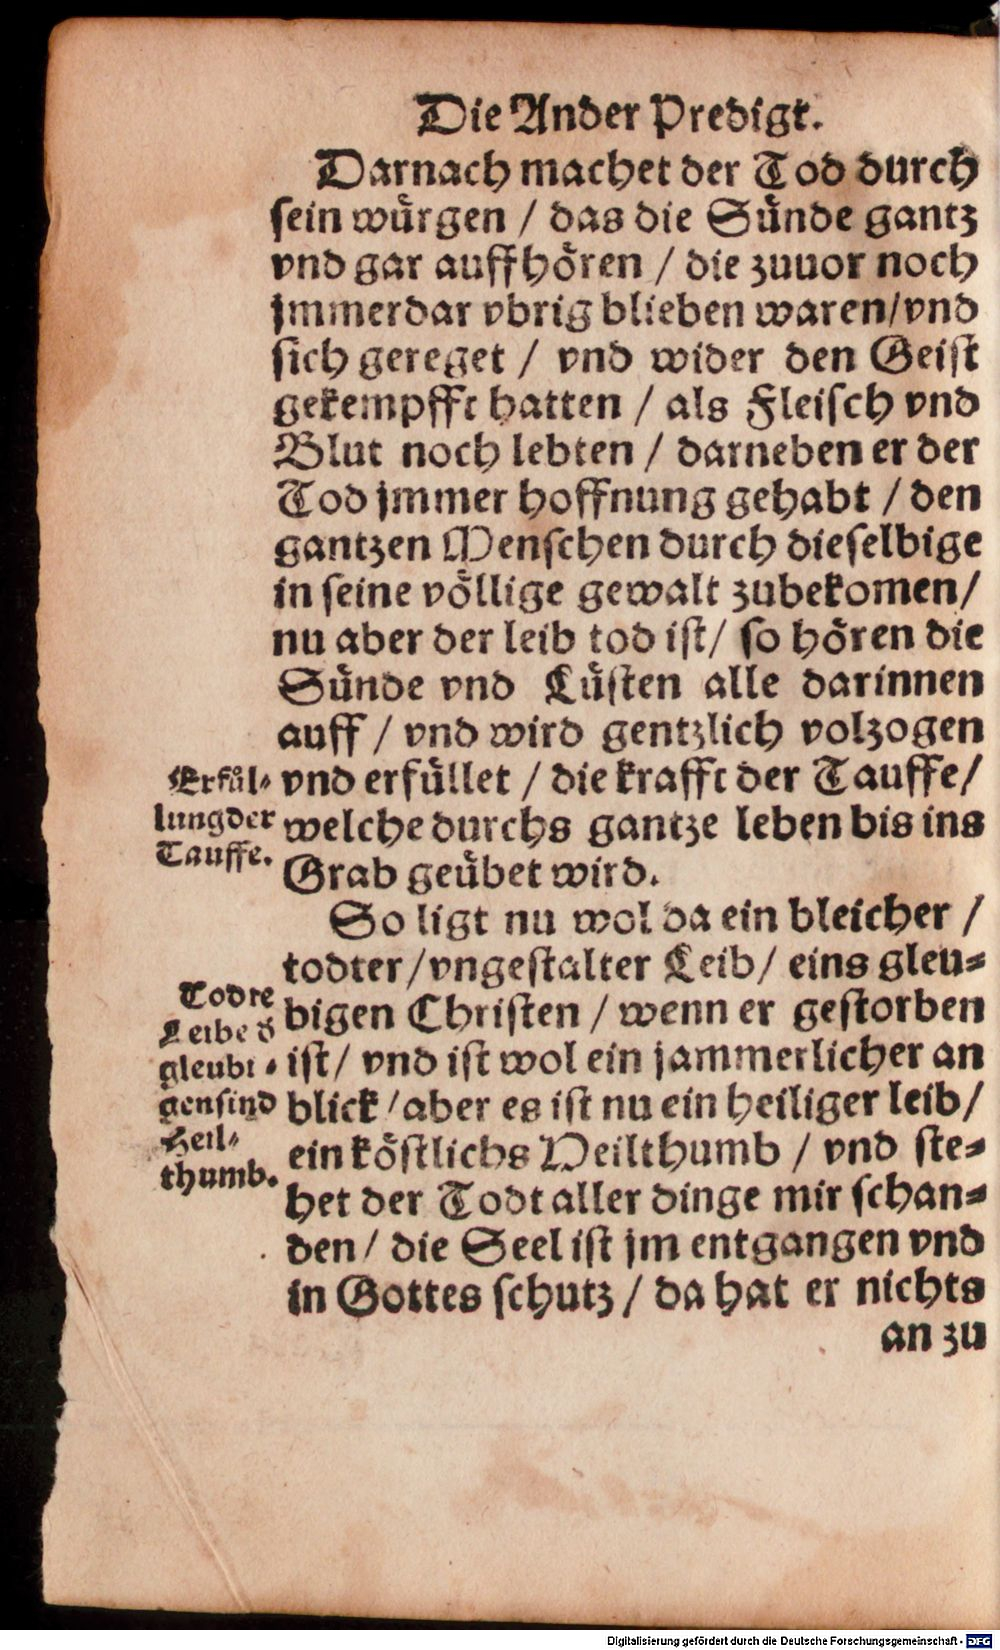 Die Ander Predigt.
Darnach machet der Tod durch
sein würgen / das die Sünde gantz
vnd gar auffhören / die zuuor noch
jmmerdar vbrig blieben waren/vnd
sich gereget / vnd wider den Geist
gekempfft hatten / als Fleisch vnd
Blut noch lebten / darneben er der
Tod jmmer hoffnung gehabt / den
gantzen Menschen durch dieselbige
in seine völlige gewalt zubekomen/
nu aber der leib tod ist/ so hören die
Sünde vnd Lüsten alle darinnen
auff / vnd wird gentzlich volzogen
vnd erfüllet / die krafft der Tauffe/
welche durchs gantze leben bis ins
Grab geübet wird.
Erfül-
lung der
Tauffe.
So ligt nu wol da ein bleicher /
todter/vngestalter Leib/ eins gleu-
bigen Christen / wenn er gestorben
ist/ vnd ist wol ein jammerlicher an
blick/aber es ist nu ein heiliger leib/
ein köstlichs Heilthumb / vnd ste-
het der Todt aller dinge mir schan-
den/ die Seel ist jm entgangen vnd
in Gottes schutz / da hat er nichts
Todte
Leibe d
gleubi-
gen sind
Heil-
thumb.
an zu
Digitalisierung gefördert durch die Deutsche Forschungsgemeinschaft - DFG